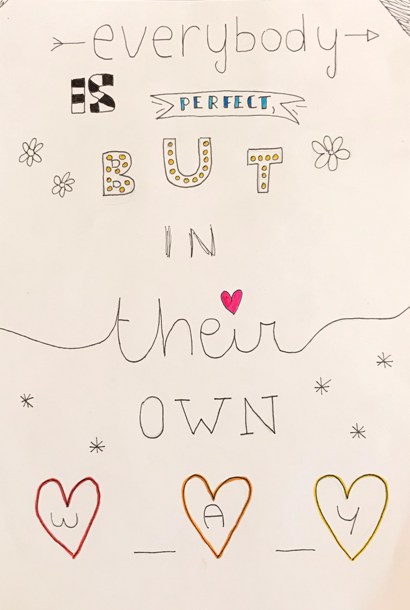 everybody
IS PERFECT,
BUT
IN
their
OWN
W A Y